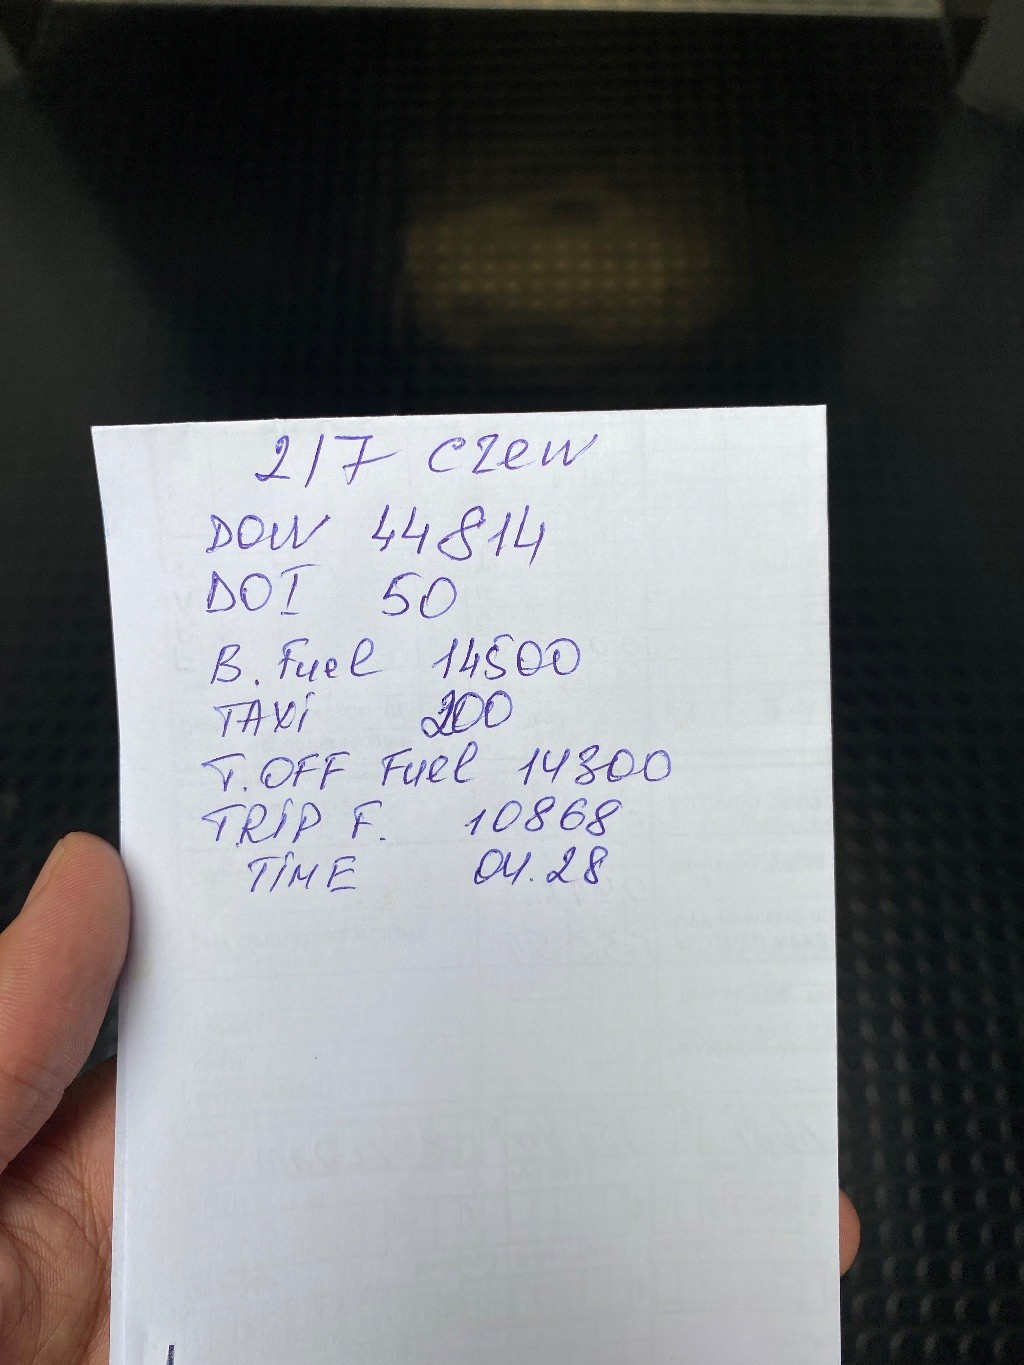 2/7 crew
DOW 44814
DOI 50
B. Fuel 14500
TAXi 200
T.OFF Fuel 14300
TRiP F. 10868
TiME 04.28